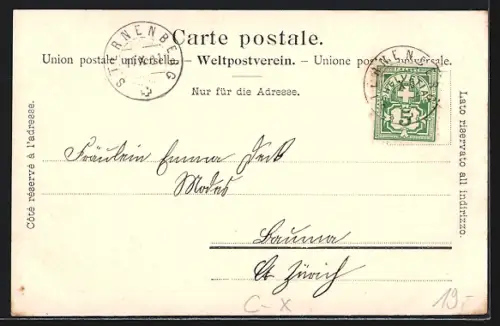 Carte postale.
Union postale universelle. – Weltpostverein. – Unione postale universale.
Nur für die Adresse.
Côté réservé à l'adresse.
Lato riservato all indirizzo.
STERNENBERG
HELVETIA
5
Fräulein Emma
Modes
Bauma
Kt. Zürich
C-X
19.-